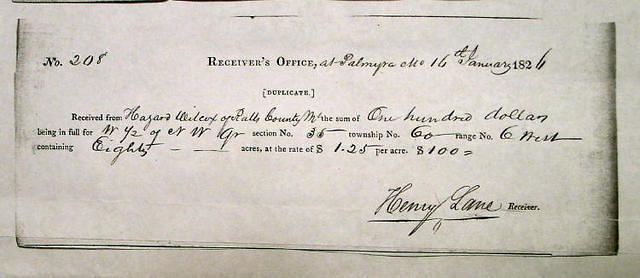 No. 208 RECEIVER'S OFFICE, at Palmyra Mo 16th January 1826
[DUPLICATE.]
Received from Hazard Wilcox of Ralls County Mo the sum of One hundred dollars
being in full for W 1/2 of N W Qr section No. 35 township No. 60 range No. 6 West
containing Eighty — — acres, at the rate of $ 1.25 per acre. $ 100=
Henry Lane Receiver.